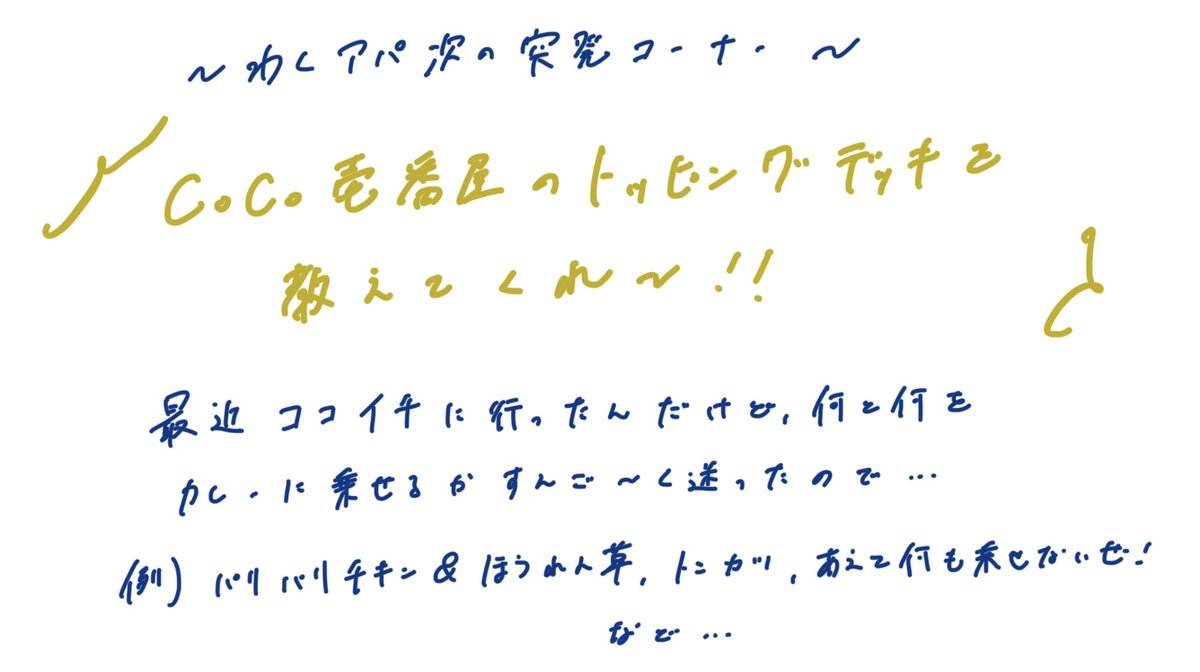 ～わくアパ次の突発コーナー～
CoCo壱番屋のトッピングデッキを
教えてくれ～!!
最近ココイチに行ったんだけど、何と何を
カレーに乗せるかすんご～く迷ったので…
(例)パリパリチキン&ほうれん草、トンカツ、あえて何も乗せないぜ!
など…